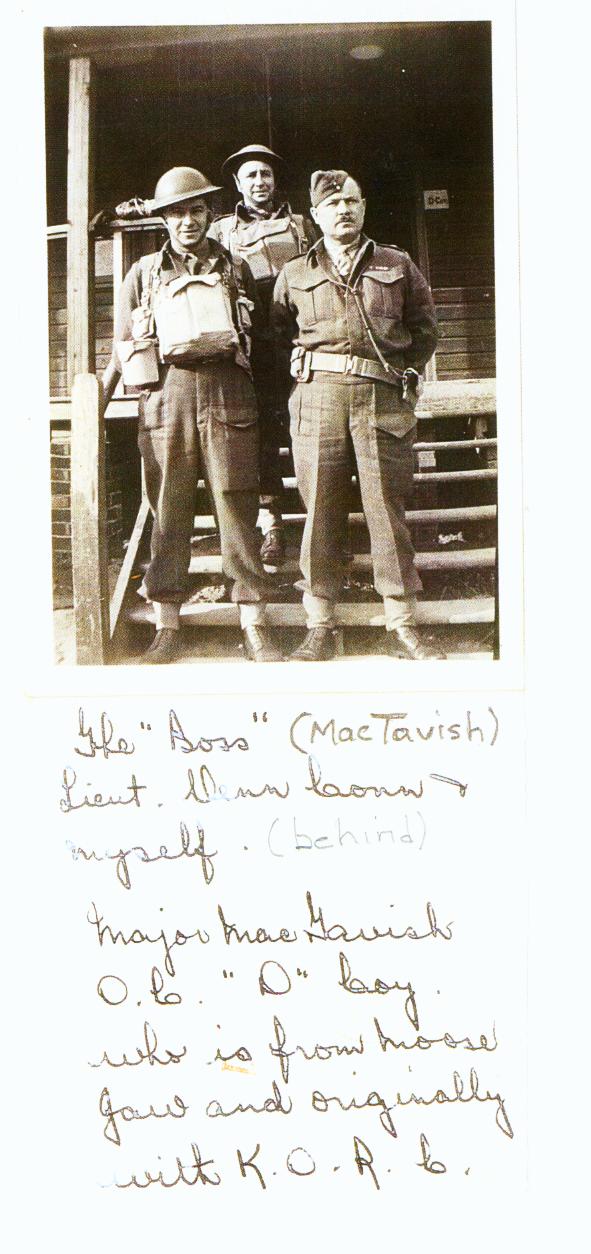 D Coy
The "Boss" (MacTavish)
Lieut. Venn Conn &
myself. (behind)
Major MacTavish
O.C. "D" Coy.
who is from Moose
Jaw and originally
with K.O.R.C.